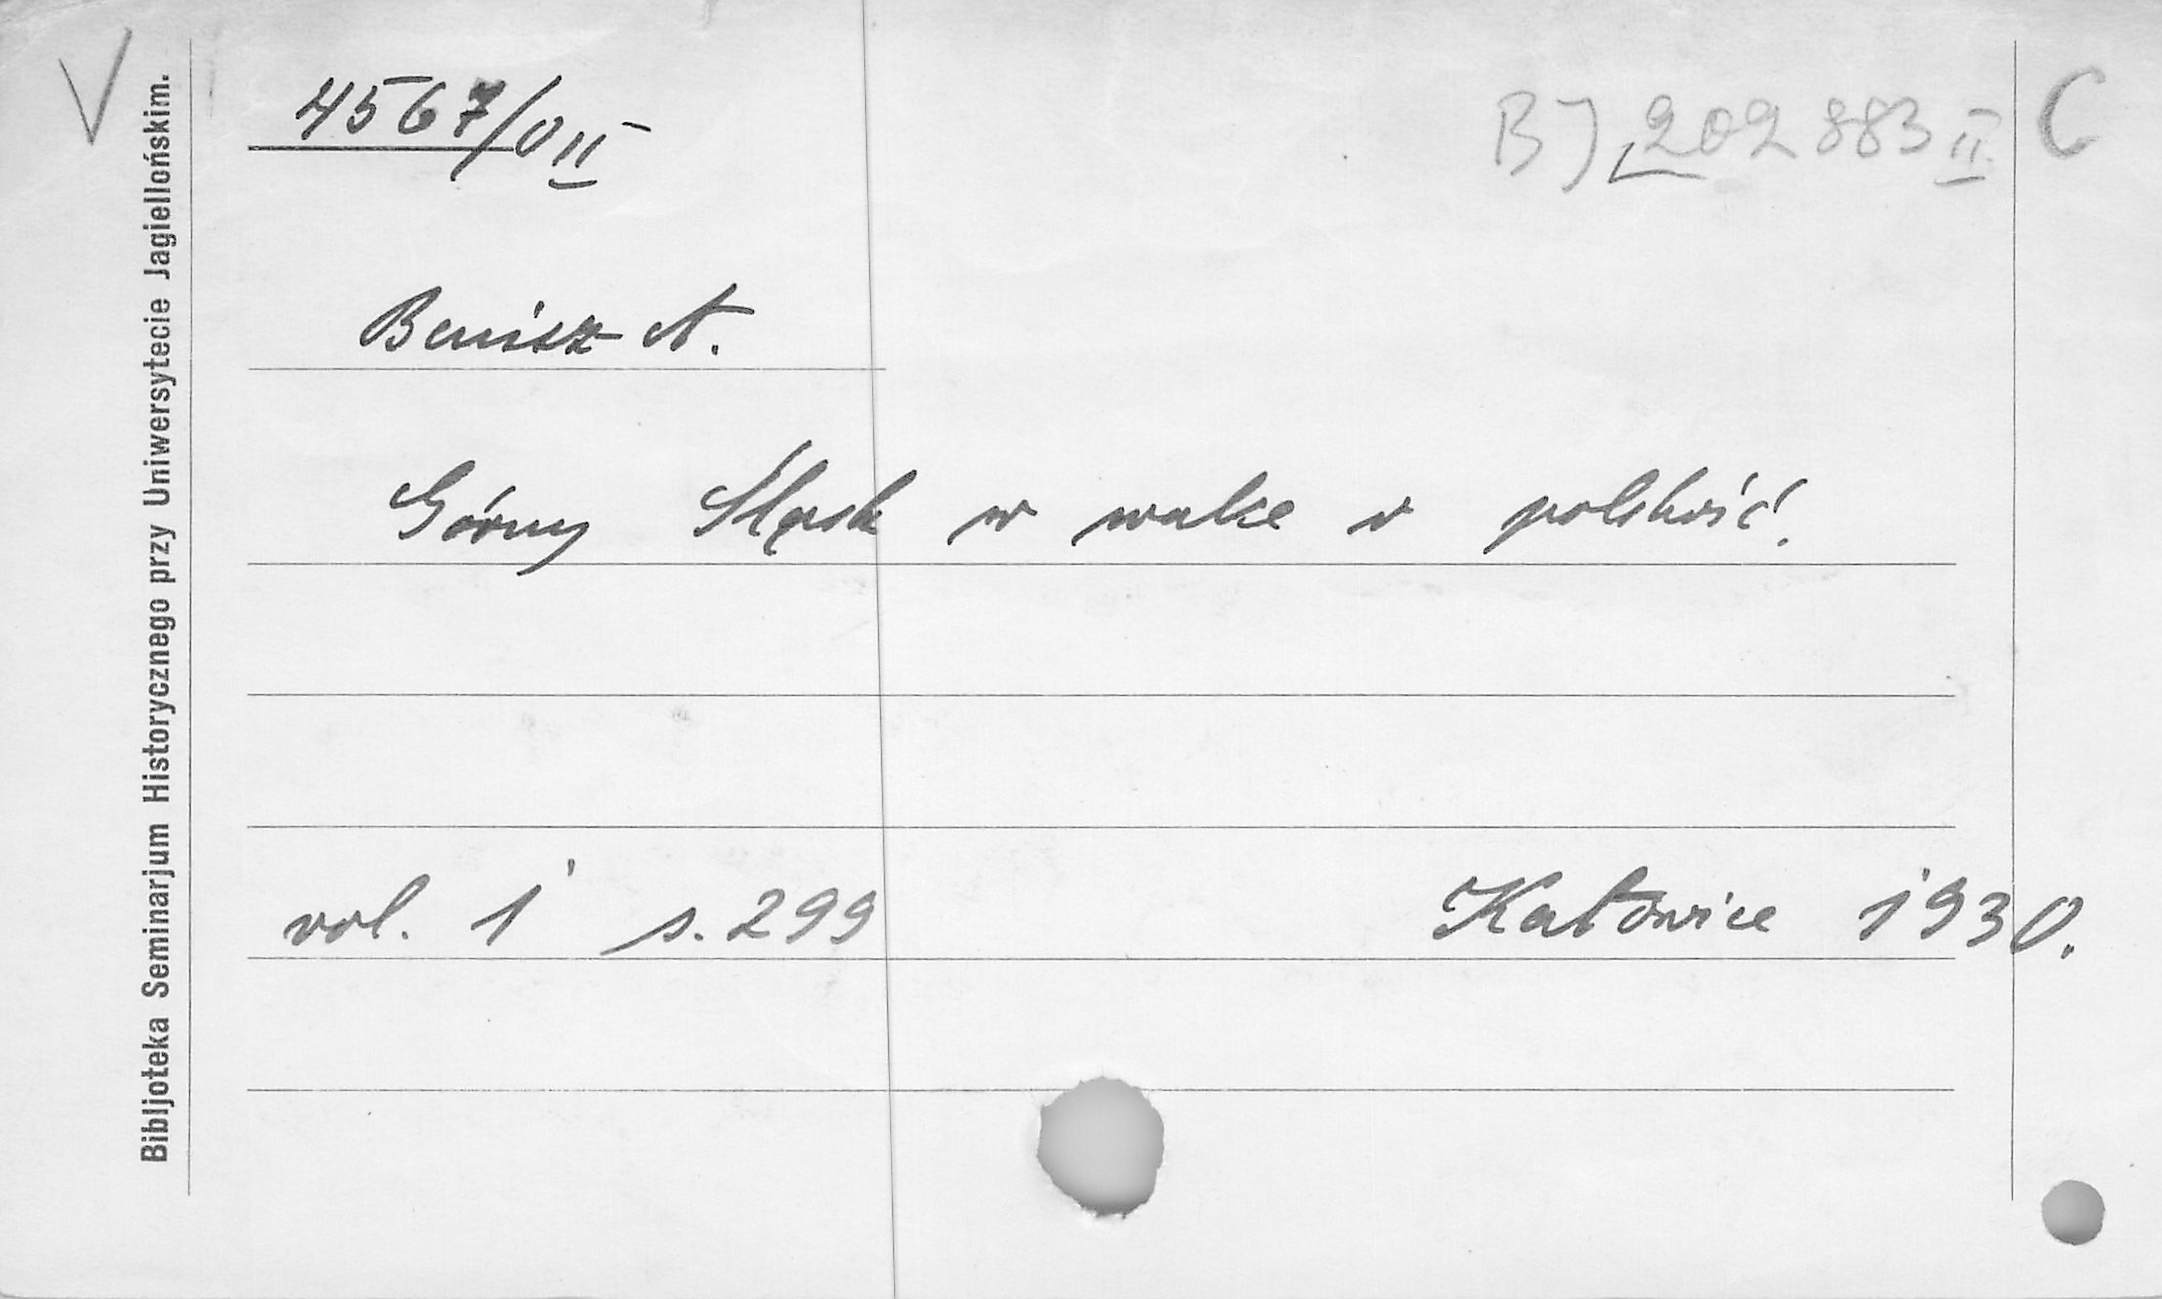 V
4567/VII
BJ 202 883 II
C
Benisz A.
Górny Śląsk w walce o polskość.
vol. 1 s. 299 Katowice 1930.
Bibljoteka Seminarjum Historycznego przy Uniwersytecie Jagiellońskim.